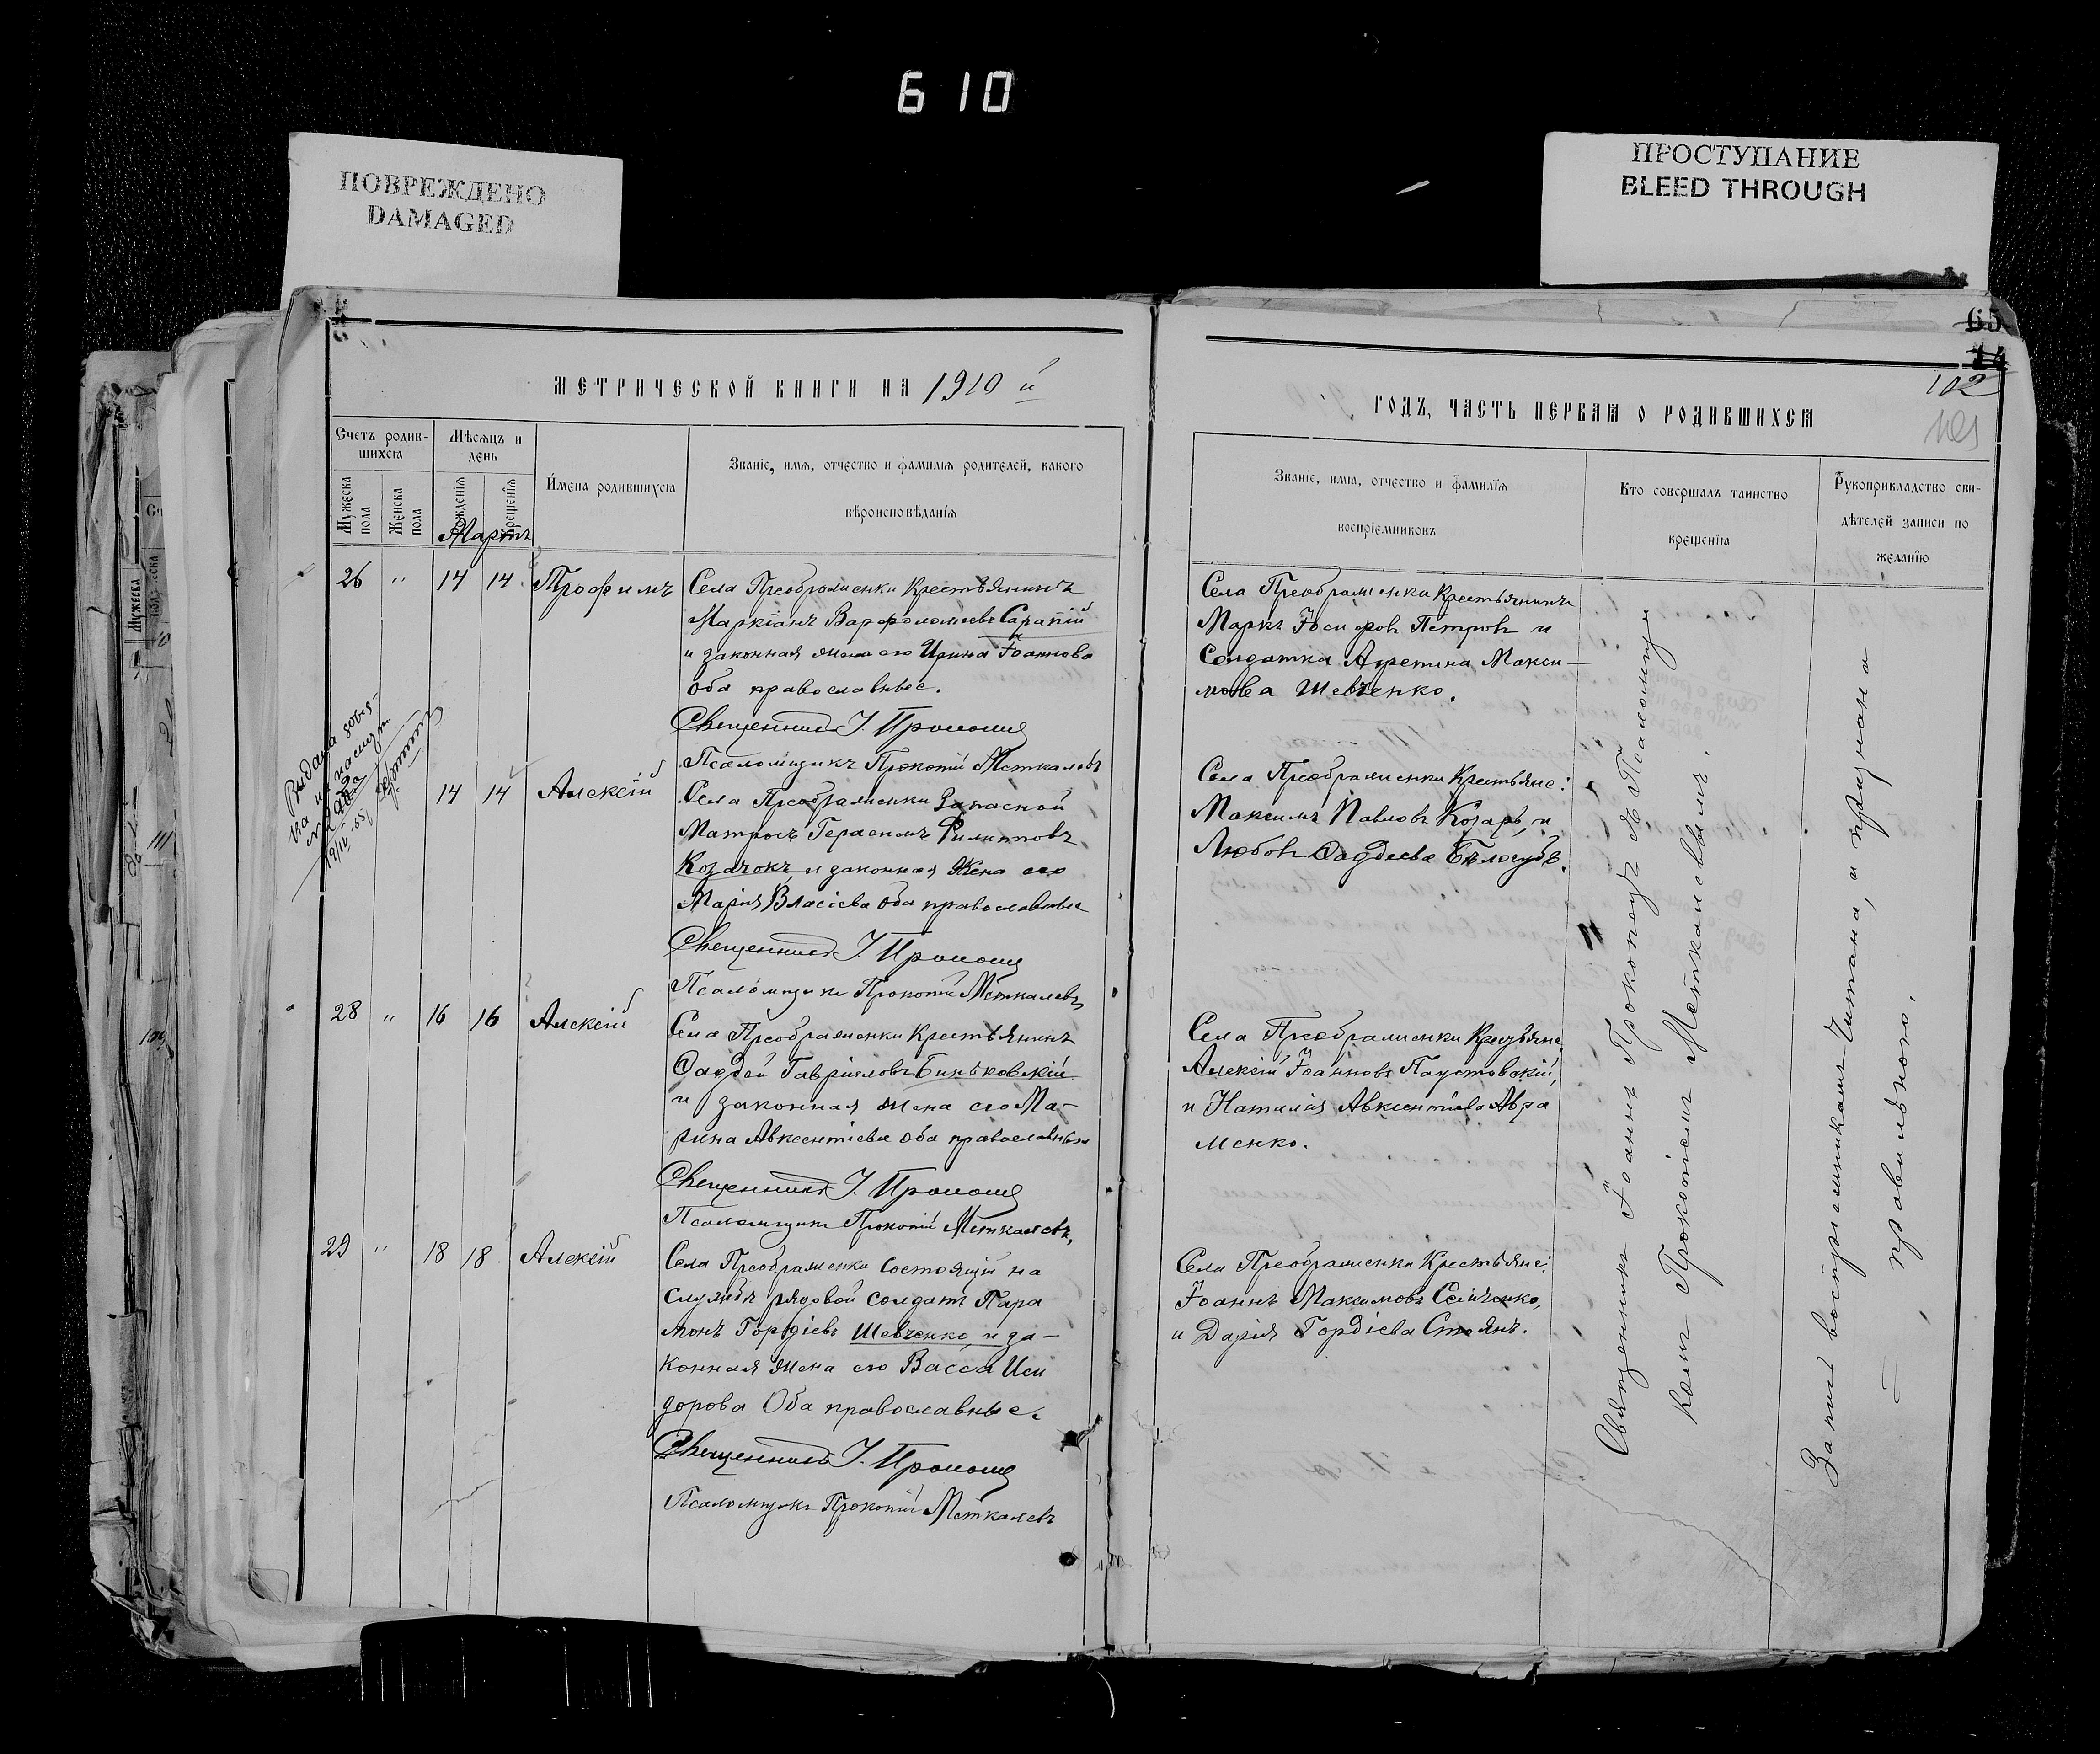 610
ПОВРЕЖДЕНО
DAMAGED
ПРОСТУПАНИЕ
BLEED THROUGH
МЕТРИЧЕСКОЙ КНИГИ НА 1910 й
Счетъ родив-
шихся
Мужеска
пола
Женска
пола
Мѣсяцъ и
день
рожденія
крещенія
Мартъ
Имена родившихся
Званіе, имя, отчество и фамилія родителей, какого
вѣроисповѣданія
26 " 14 14 Трофимъ
Села Преображенки Крестьянинъ
Маркіанъ Варфоломеевъ Сарапій
и законная жена его Ирина Іоаннова
оба православные.
Священникъ І.
Псаломщикъ Прокопій Меткалевъ
Выдана
14 14 Алексій
Села Преображенки Запасной
Матросъ Герасимъ Филиповъ
Козачокъ, и законная Жена его
Марія Власіева оба православные
Священникъ І.
Псаломщикъ Прокопій Меткалевъ
28 " 16 16 Алексій
Села Преображенки Крестьянинъ
Фаддей Гавріиловъ Биньковскій
и законная жена его Ма-
рина Авксентіева оба православные
Священникъ І.
Псаломщикъ Прокопій Меткалевъ
29 " 18 18 Алексій
Села Преображенки Состоящій на
службѣ рядовой солдатъ Пара
монъ Гордіевъ Шевченко, и за-
конная жена его Васса Иси
дорова Оба православные.
Священникъ І.
Псаломщикъ Прокопій Меткалевъ
65
14
102
ГОДЪ, ЧАСТЬ ПЕРВАЯ О РОДИВШИХСЯ
Званіе, имя, отчество и фамилія
воспріемниковъ
Кто совершалъ таинство
крещенія
Рукоприкладство сви-
дѣтелей записи по
желанію
Села Преображенки Крестьянинъ
Маркъ Іосифовъ Петровъ и
Солдатка Агрепина Макси-
мова Шевченко.
Села Преображенки Крестьяне:
Максимъ Павловъ Козарь, и
Любовь Фаддеева Бѣлозубъ.
Села Преображенки Крестьяне:
Алексій Іоанновъ Паустовскій,
и Наталія Авксентіева Авра
менко.
Села Преображенки Крестьяне:
Іоаннъ Максимовъ Сеінченко,
и Дарія Гордіева Стоянъ.
Священникъ Іоаннъ Прокопецъ съ Псаломщи
комъ Прокопіемъ Меткалевымъ.
Запись воспріемникамъ Читана, и признана
правильною.